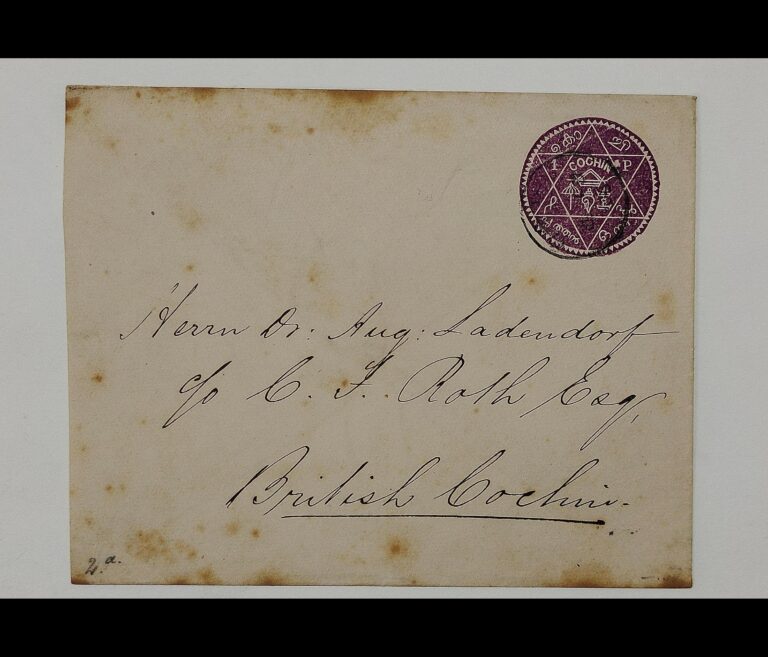 കൊ ച്ചി
1 COCHIN P
Herrn Dr: Aug: Ladendorf
c/o C. F. Roth Esq,
British Cochin.
2 a.